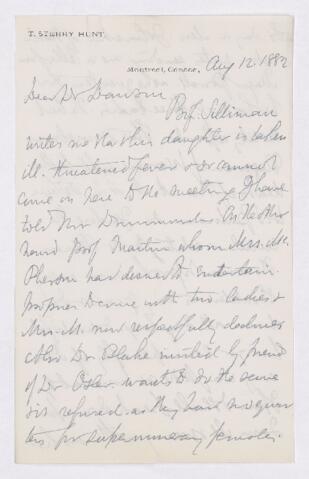 T. STERRY HUNT.
Montreal, Canada, Aug 12. 1882
Dear Dr Dawson
Prof. Silliman
writes me that his daughter is taken
ill. threatened fever & so cannot
come on here to the meeting I have
told Mrs Drummond. On the other
hand Prof Martin whom Mrs. Mc
Pherson has desired to entertain
proposes to come with two ladies &
Mrs. M. now respectfully declines
also Dr Blake invited by friend
of Dr Osler wants to do the same
& is refused. as they have no quar
ters for supernumerary females.